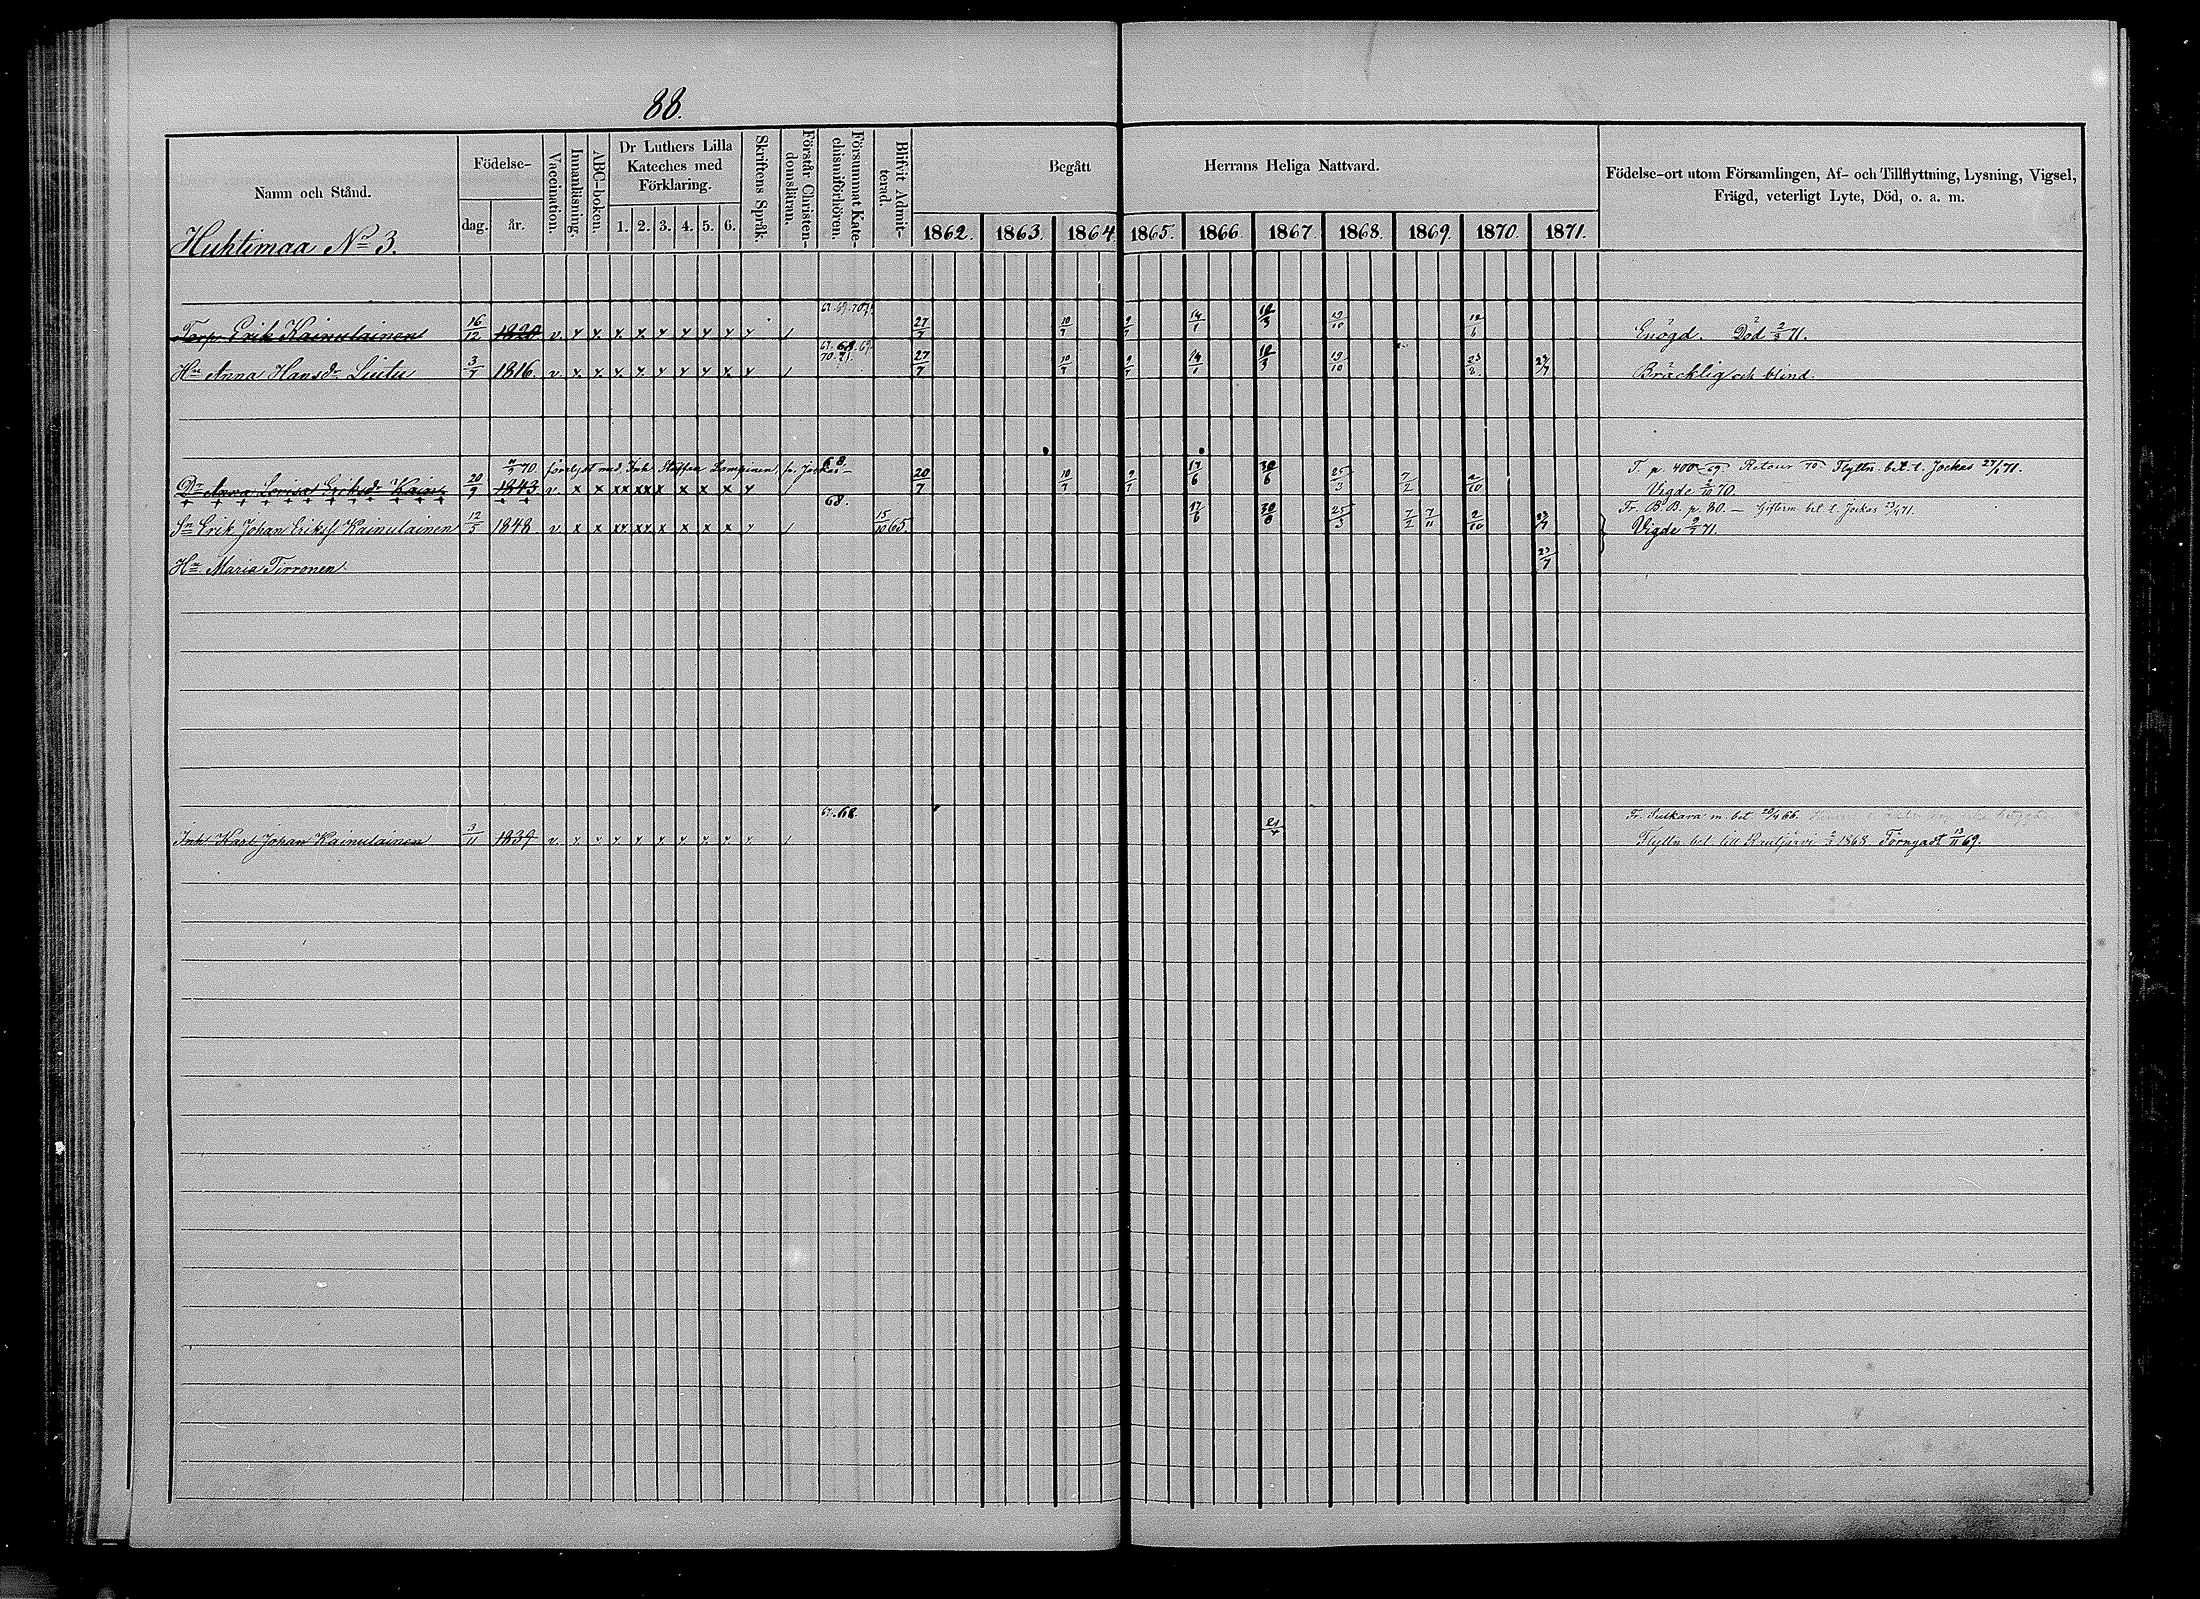 88.
Namn och Stånd.
Födelse-
dag.
år.
Vaccination.
Innanläsning.
ABC-boken.
Dr Luthers Lilla
Kateches med
Förklaring.
1. 2. 3. 4. 5. 6.
Skriftens Språk.
Förstår Christen-
domsläran.
Försummat Kate-
chismiförhören.
Blifvit Admit-
terad.
Begått Herrans Heliga Nattvard.
1862. 1863. 1864 1865. 1866. 1867. 1868. 1869. 1870. 1871.
Födelse-ort utom Församlingen, Af- och Tillflyttning, Lysning, Vigsel,
Frägd, veterligt Lyte, Död, o. a. m.
Huhtimaa No 3.
Torp. Erik Kainulainen 16/12 1820 v. 27/7 10/7 9/7 14/1 10/3 19/10 Enögd. Död 2/3 71.
67. 68. 69.
70. 71.
Hu Anna Hansdr Liutu 3/7 1816. v. 27/7 10/7 9/7 14/1 10/3 19/10 23/2 23/7 Bräcklig och blind.
70. förelyst med Inh. Staffan Lampinen fr. Jockas 68 T. p. 400 69 Retour 70 Flyttn. bet. t. Jockas 27/1 71.
Dr Anna Lovisa Eriksdr Kain. 20/9 1843 v. 20/7 10/7 9/7 17/6 30/6 25/3 7/2 2/10 Vigde 2/10 70.
68. Fr. B. B. p. 80.
Sn Erik Johan Erikss. Kainulainen 12/5 1848. v 15/10 65. 17/6 30/6 25/3 7/2 7/11 2/10 23/7 Vigde 2/7 71.
Hu Maria Tirronen 23/7
67. 68. m. bet 66.
Inh Karl Johan Kainulainen 3/11 1839 v. Flyttn. bet. till Rautjärvi 1868 Förnyadt 13/11 69.